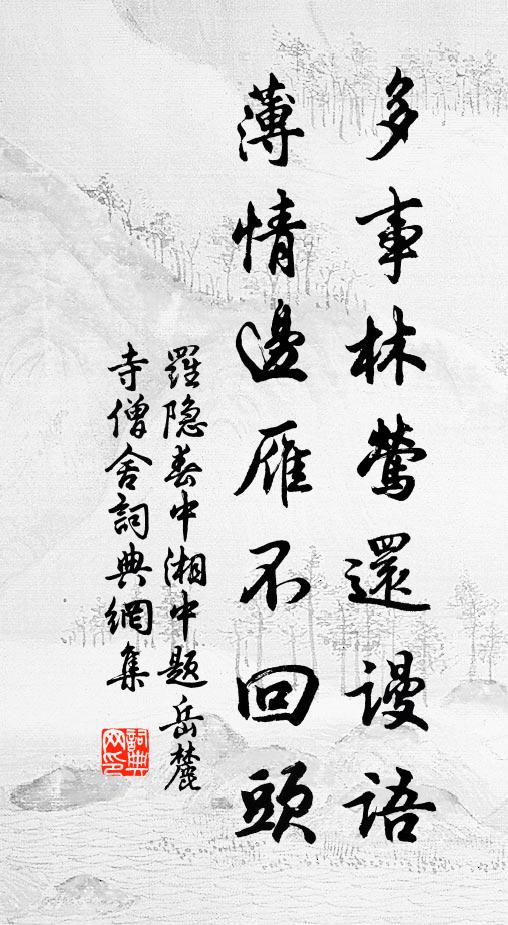 多事林鶯還謾語
薄情邊雁不回頭
羅隐春中湘中題岳麓
寺僧舍詞典網集
詞典
网印